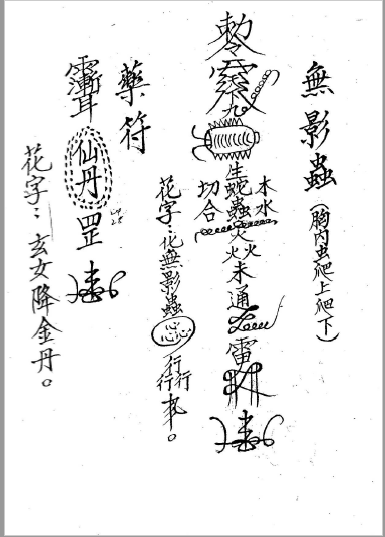 無影蟲(胸内虫爬上爬下)
生蛇蟲
木水
切合
火火火
未通
雷
花字:化無影蟲
心心心
行行行
藥符
仙丹
罡
花字:玄女降金丹。